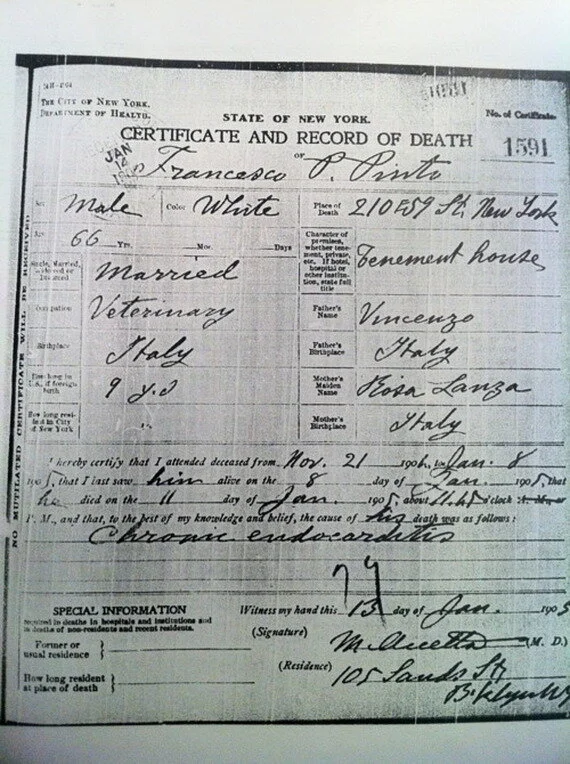 THE CITY OF NEW YORK.
DEPARTMENT OF HEALTH.
STATE OF NEW YORK.
No. of Certificate.
CERTIFICATE AND RECORD OF DEATH
1591
OF
JAN
14
Francesco P. Pinto
Sex Male Color White
Place of Death 210 E 59 St. New York
Age 66 Yrs. Mos. Days
Character of premises, whether tenement, private, etc. If hotel, hospital or other institution, state full title
Tenement house
Single, Married, Widowed or Divorced
Married
Occupation Veterinary
Father's Name Vincenzo
Birthplace Italy
Father's Birthplace Italy
How long in U.S., if foreign birth
9 y.s
Mother's Maiden Name Rosa Lanza
How long resident in City of New York
"
Mother's Birthplace Italy
NO MUTILATED CERTIFICATE WILL BE RECEIVED
I hereby certify that I attended deceased from Nov. 21 190 to Jan. 8
1905, that I last saw him alive on the 8 day of Jan. 1905, that
he died on the 11 day of Jan. 1905, about 11.45 o'clock A. M., or
P. M., and that, to the best of my knowledge and belief, the cause of his death was as follows:
Chronic endocarditis
79
SPECIAL INFORMATION
required in deaths in hospitals and institutions and
in deaths of non-residents and recent residents.
Witness my hand this 13 day of Jan. 1905
(Signature) (M. D.)
Former or usual residence
(Residence) 105 Sands St
B'klyn NY
How long resident at place of death